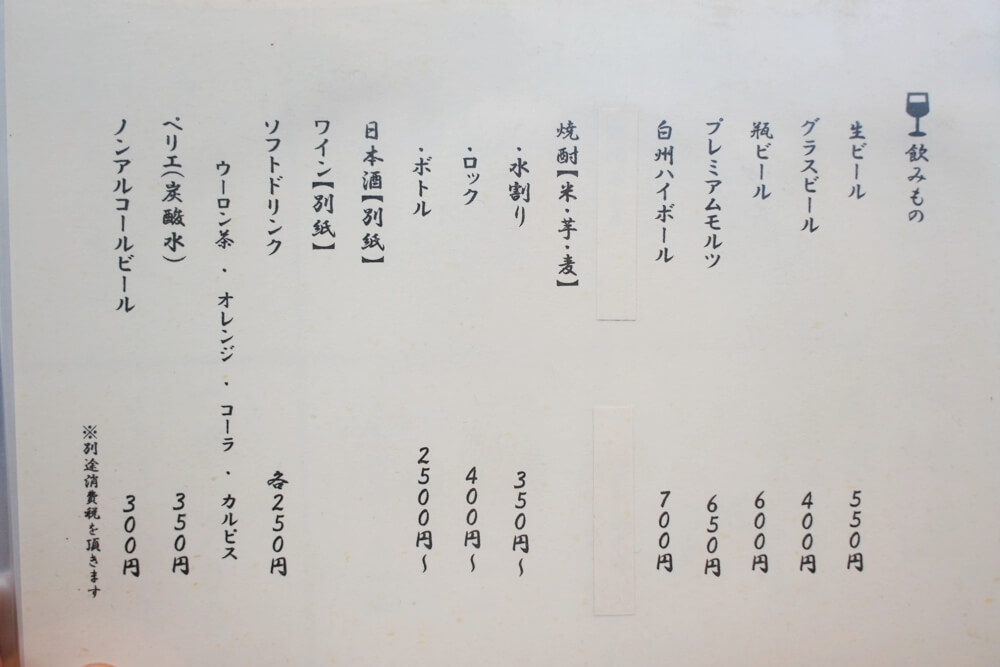 飲みもの
生ビール 550円
グラスビール 400円
瓶ビール 600円
プレミアムモルツ 650円
白州ハイボール 700円
焼酎【米・芋・麦】
・水割り 350円〜
・ロック 400円〜
・ボトル 2500円〜
日本酒【別紙】
ワイン【別紙】
ソフトドリンク 各250円
ウーロン茶 ・ オレンジ ・ コーラ ・ カルピス
ペリエ(炭酸水) 350円
ノンアルコールビール 300円
※別途消費税を頂きます